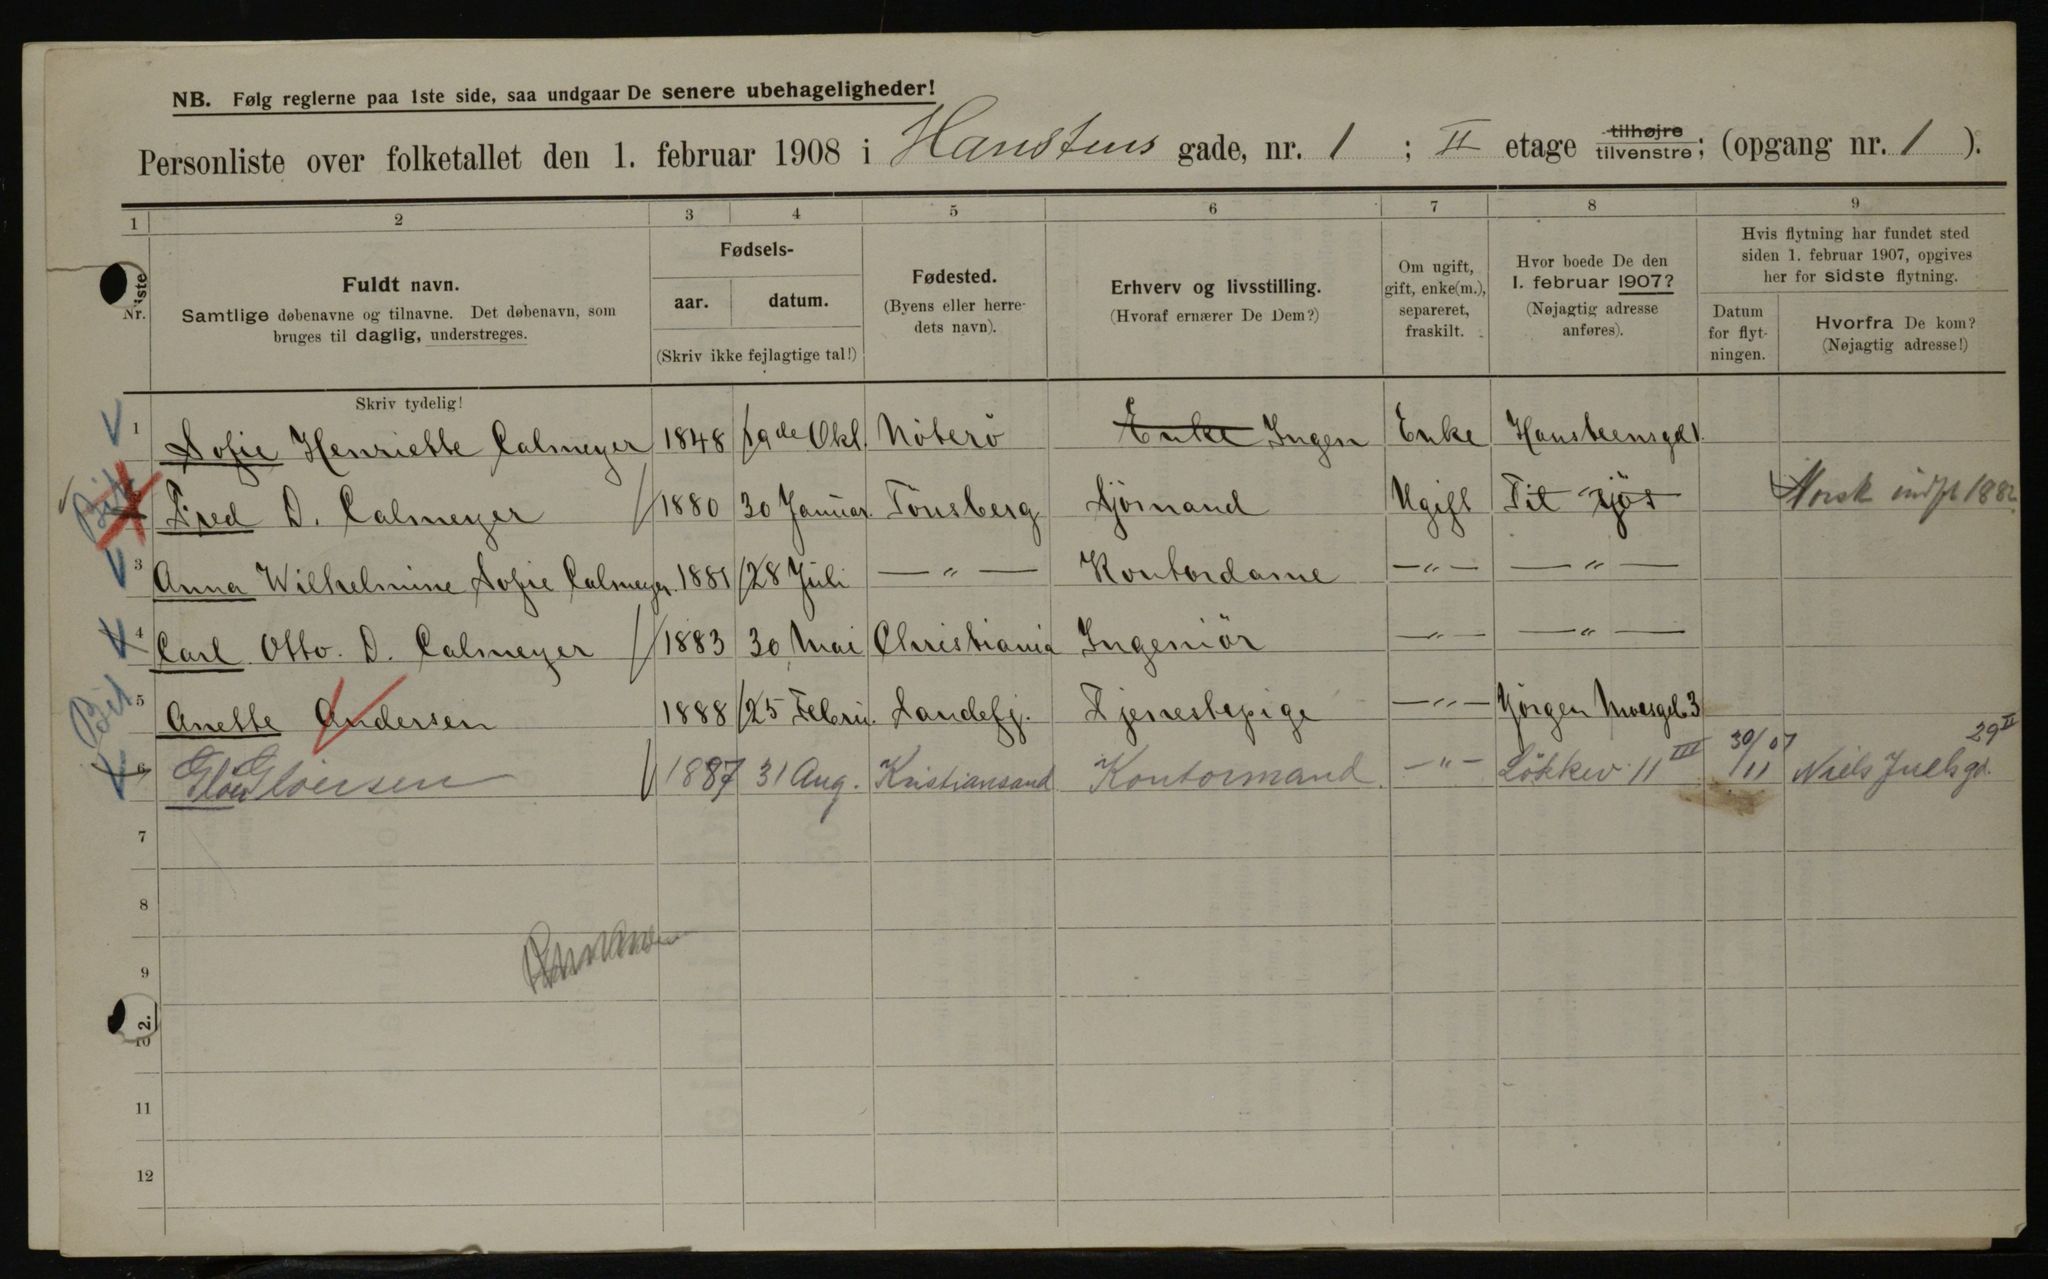 NB. Følg reglerne paa 1ste side, saa undgaar De senere ubehageligheder!
Personliste over folketallet den 1. februar 1908 i Hanstens gade, nr. 1 ; II etage tilhøjre tilvenstre; (opgang nr. 1 ).
1 2 3 4 5 6 7 8 9
Nr.
Fuldt navn.
Samtlige døbenavne og tilnavne. Det døbenavn, som
bruges til daglig, understreges.
Fødsels-
aar. datum.
(Skriv ikke fejlagtige tal!)
Fødested.
(Byens eller herre-
dets navn).
Erhverv og livsstilling.
(Hvoraf ernærer De Dem?)
Om ugift,
gift, enke(m.),
separeret,
fraskilt.
Hvor boede De den
1. februar 1907?
(Nøjagtig adresse
anføres).
Hvis flytning har fundet sted
siden 1. februar 1907, opgives
her for sidste flytning.
Datum
for flyt-
ningen.
Hvorfra De kom?
(Nøjagtig adresse!)
Skriv tydelig!
1 Sofie Henriette Calmeyer 1848 19de Okt. Nöterö Enke Ingen Enke Hansteensgd 1.
2 Fred D. Calmeyer 1880 30 Januar. Tönsberg Sjömand Ugift Til sjös Norsk 1882
3 Anna Wilhelmine Sofie Calmeyer. 1881 28 Juli —〃— Kontordame —〃— —〃—
4 Carl Otto. D. Calmeyer 1883 30 Mai Christiania Ingeniör —〃— —〃—
5 Anette Andersen 1888 25 Febru. Sandefj. Tjenestepige —〃— Jörgen Moesgd. 3
6 Gloersen 1887 31 Aug. Kristiansand Kontormand. —〃— Lökkev. 11 III 30/11 07 Niels Juelsgd. 29 II
7
8
9
2.
10
11
12